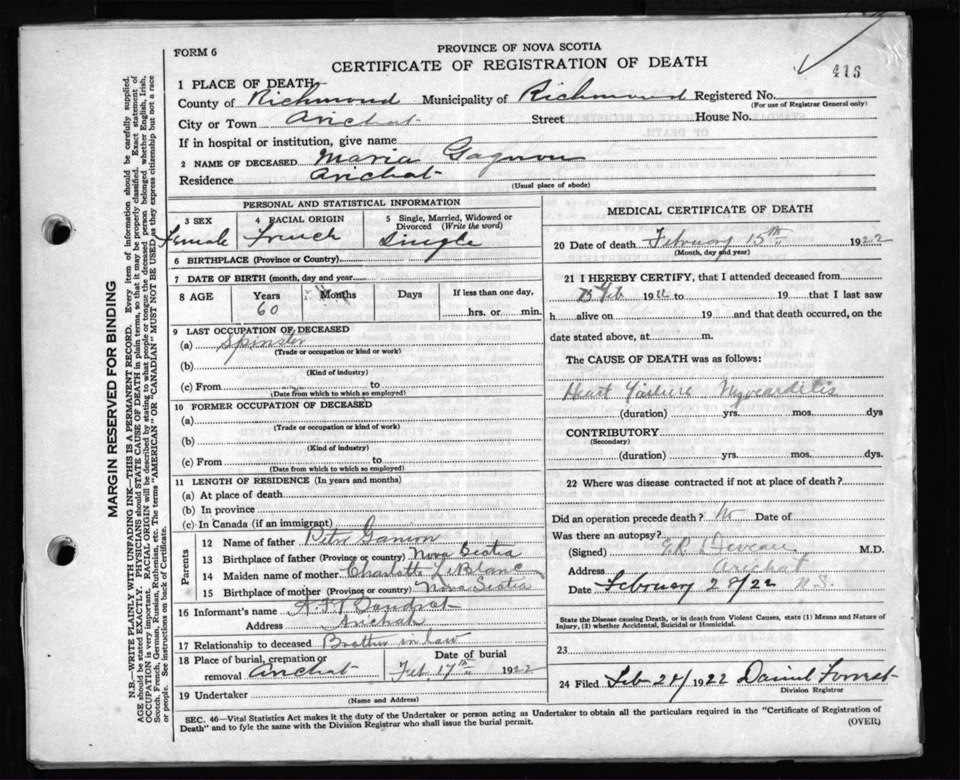 FORM 6
PROVINCE OF NOVA SCOTIA
CERTIFICATE OF REGISTRATION OF DEATH
416
1 PLACE OF DEATH
County of Richmond Municipality of Richmond Registered No.
(For use of Registrar General only)
City or Town Arichat Street House No.
If in hospital or institution, give name
2 NAME OF DECEASED Maria Gagnon
Residence Arichat
(Usual place of abode)
PERSONAL AND STATISTICAL INFORMATION
3 SEX
Female
4 RACIAL ORIGIN
French
5 Single, Married, Widowed or Divorced (Write the word)
Single
6 BIRTHPLACE (Province or Country)
7 DATE OF BIRTH (month, day and year)
8 AGE Years Months Days If less than one day,
60 hrs. or min.
9 LAST OCCUPATION OF DECEASED
(a) Spinster
(Trade or occupation or kind or work)
(b)
(Kind of industry)
(c) From to
(Date from which to which so employed)
10 FORMER OCCUPATION OF DECEASED
(a)
(Trade or occupation or kind of work)
(b)
(Kind of industry)
(c) From to
(Date from which to which so employed)
11 LENGTH OF RESIDENCE (In years and months)
(a) At place of death
(b) In province
(c) In Canada (if an immigrant)
Parents
12 Name of father Peter Ganion
13 Birthplace of father (Province or country) Nova Scotia
14 Maiden name of mother Charlotte LeBlanc
15 Birthplace of mother (Province or country) Nova Scotia
16 Informant's name
Address Arichat
17 Relationship to deceased Brother in law
18 Place of burial, cremation or removal Arichat
Date of burial
Feb 17th 1922
19 Undertaker
(Name and Address)
MEDICAL CERTIFICATE OF DEATH
20 Date of death February 15th 1922
(Month, day and year)
21 I HEREBY CERTIFY, that I attended deceased from
Feb 1922 to 19 that I last saw
h alive on 19 and that death occurred, on the
date stated above, at m.
The CAUSE OF DEATH was as follows:
Heart Failure Myocarditis
(duration) yrs. mos. dys
CONTRIBUTORY
(Secondary)
(duration) yrs. mos. dys.
22 Where was disease contracted if not at place of death?
Did an operation precede death? No Date of
Was there an autopsy?
(Signed) E R Deveau M.D.
Address Arichat
Date February 28/22 N.S.
State the Disease causing Death, or in death from Violent Causes, state (1) Means and Nature of Injury, (2) whether Accidental, Suicidal or Homicidal.
23
24 Filed Feb 28/ 1922 Daniel Forrest
Division Registrar
SEC. 46—Vital Statistics Act makes it the duty of the Undertaker or person acting as Undertaker to obtain all the particulars required in the "Certificate of Registration of
Death" and to fyle the same with the Division Registrar who shall issue the burial permit.
(OVER)
MARGIN RESERVED FOR BINDING
N.B.—WRITE PLAINLY WITH UNFADING INK—THIS IS A PERMANENT RECORD. Every item of information should be carefully supplied.
AGE should be stated EXACTLY. PHYSICIANS should STATE CAUSE OF DEATH in plain terms, so that it may be properly classified. Exact statement of
OCCUPATION is very important. RACIAL ORIGIN will be described by stating to what people or tongue the deceased person belonged whether English, Irish,
Scotch, French, German, Russian, Ruthenian, etc. The terms "AMERICAN" or "CANADIAN" MUST NOT BE USED as they express citizenship but not a race
or people. See instructions on back of Certificate.